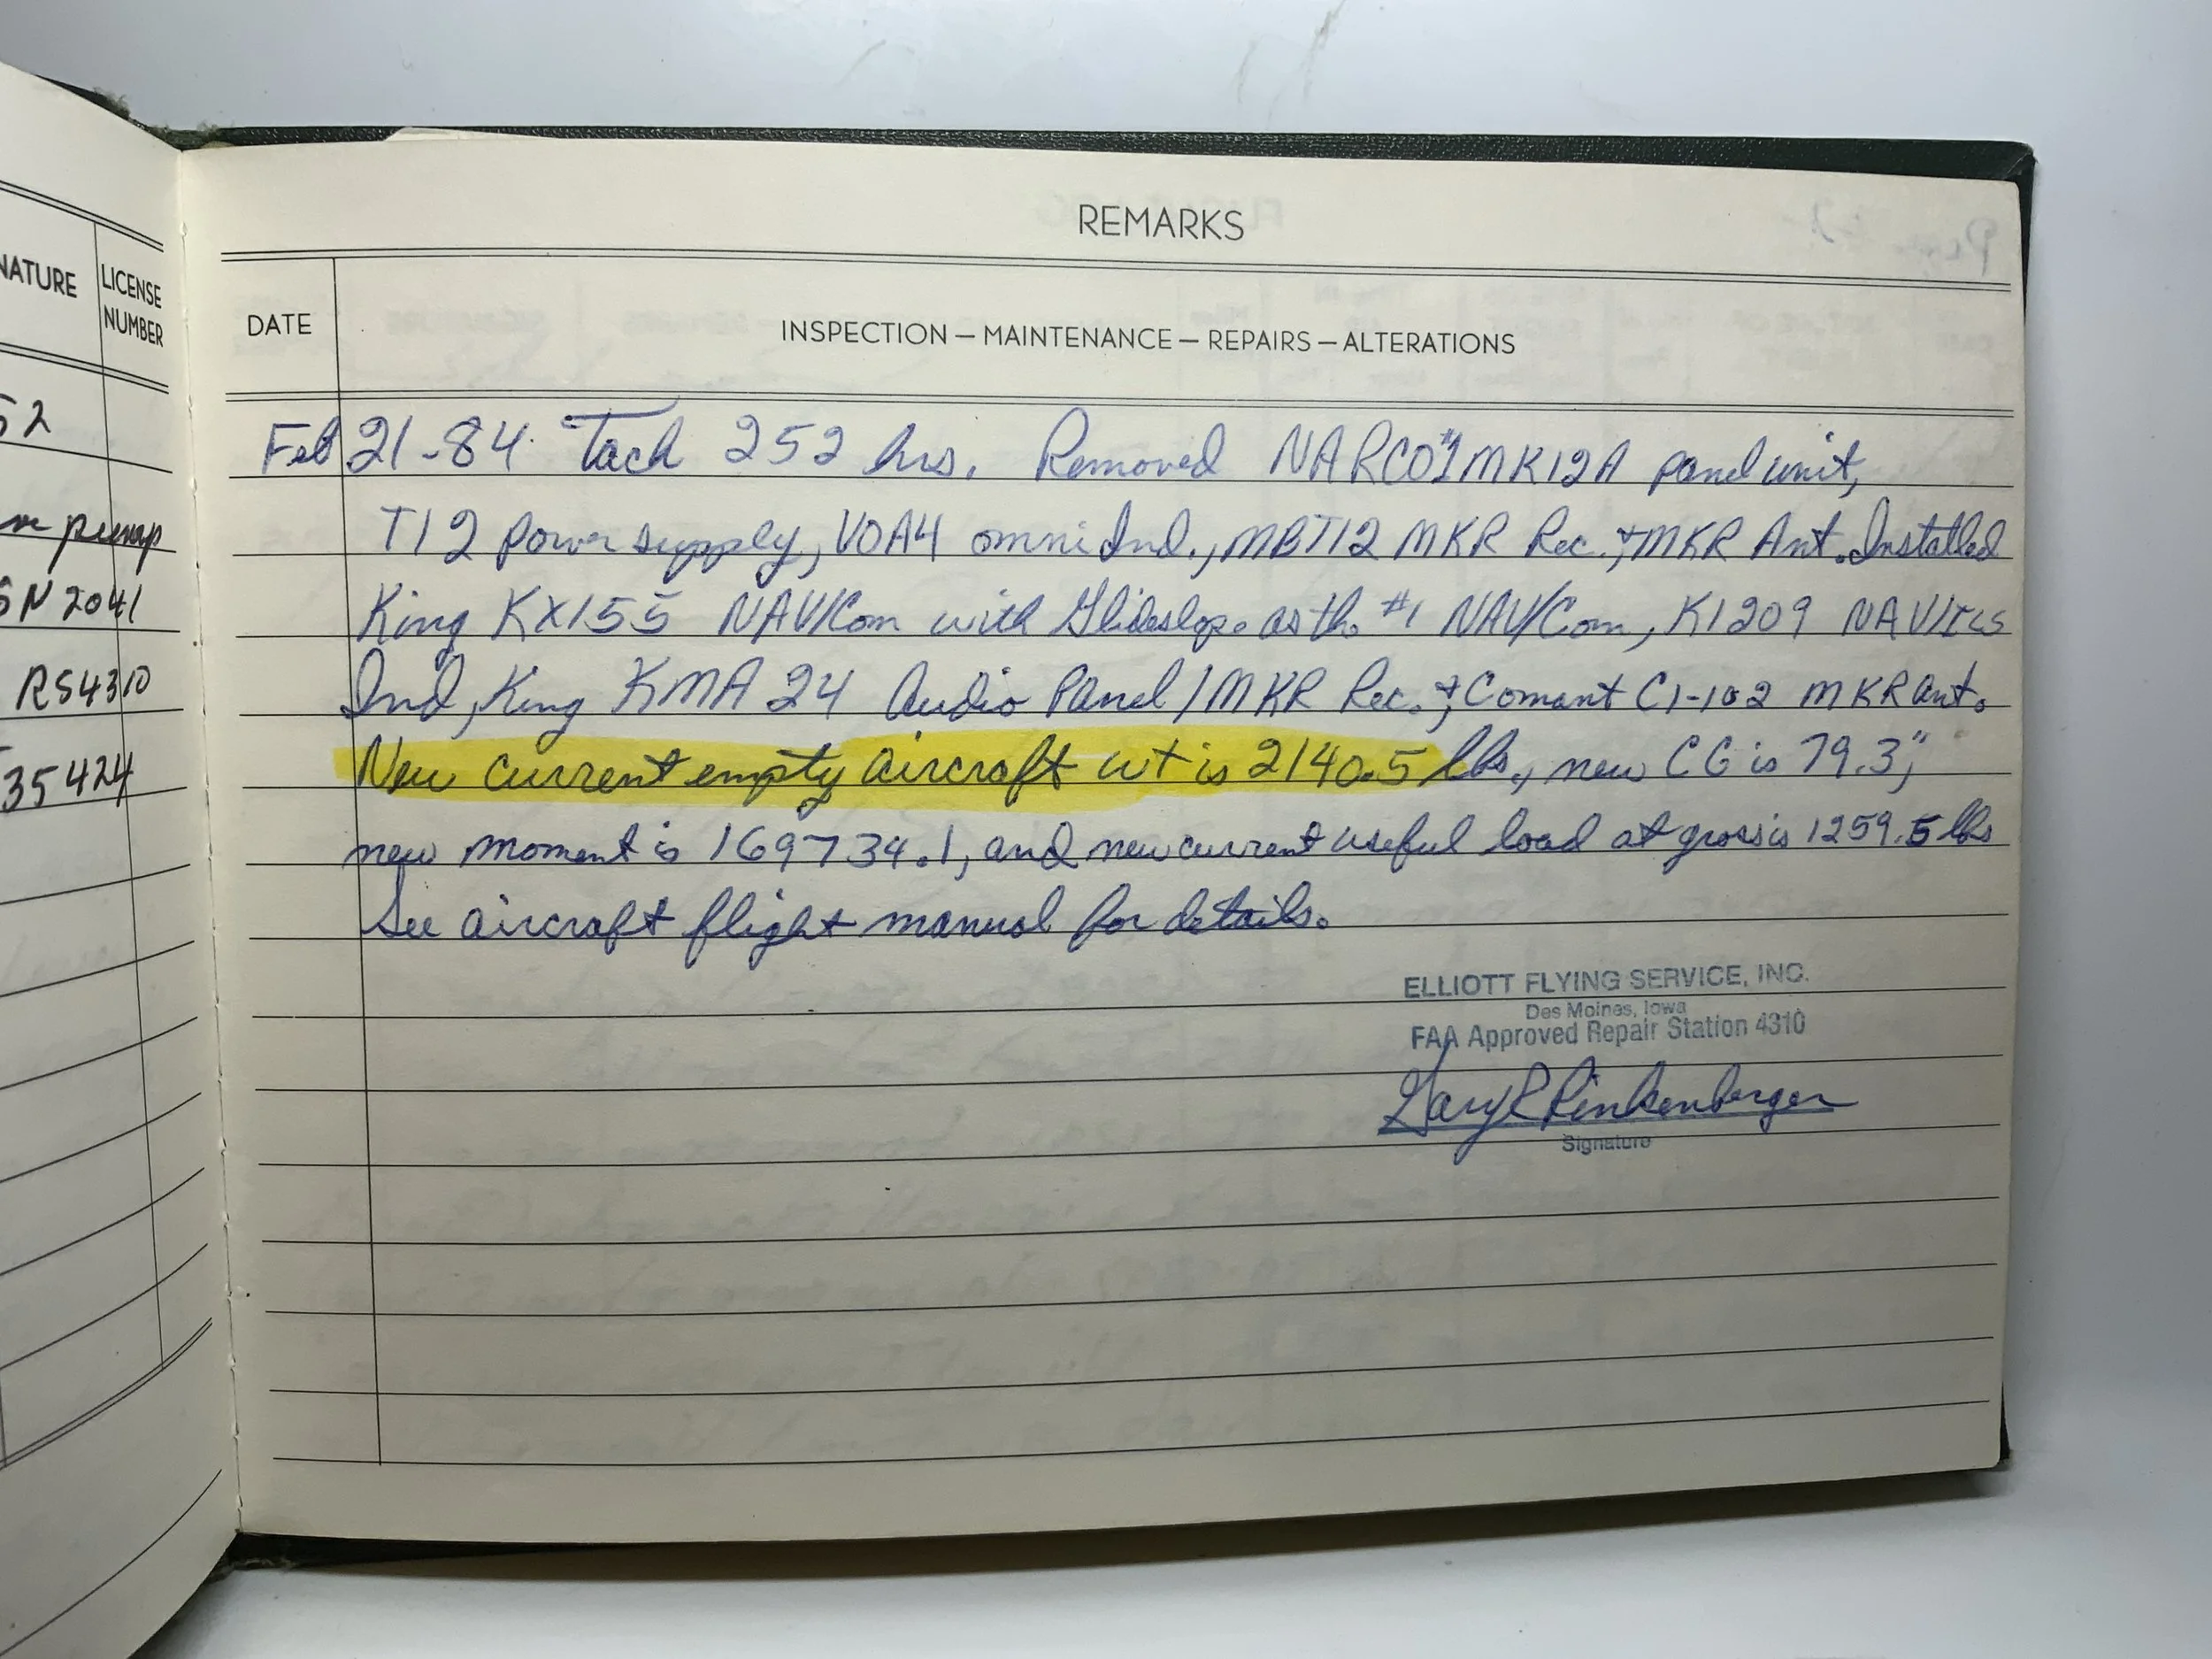 NATURE
LICENSE
NUMBER
52
pump
SN 2041
RS4310
35424
REMARKS
DATE
INSPECTION — MAINTENANCE — REPAIRS — ALTERATIONS
Feb 21-84 Tach 252 hrs. Removed NARCO #1 MK12A panel unit,
T12 power supply, VOA4 omni Ind., MBT12 MKR Rec. & MKR Ant. Installed
King KX155 NAV/Com with Glideslope as the #1 NAV/Com, KI209 NAV/ILS
Ind, King KMA 24 Audio Panel/MKR Rec. & Comant CI-102 MKR ant.
New current empty aircraft wt is 2140.5 lbs., new CG is 79.3",
new moment is 169734.1, and new current useful load at gross is 1259.5 lbs
See aircraft flight manual for details.
ELLIOTT FLYING SERVICE, INC.
Des Moines, Iowa
FAA Approved Repair Station 4310
Gary R Rinkenberger
Signature